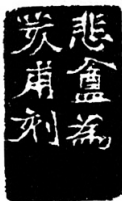 悲盦為
荄甫刻